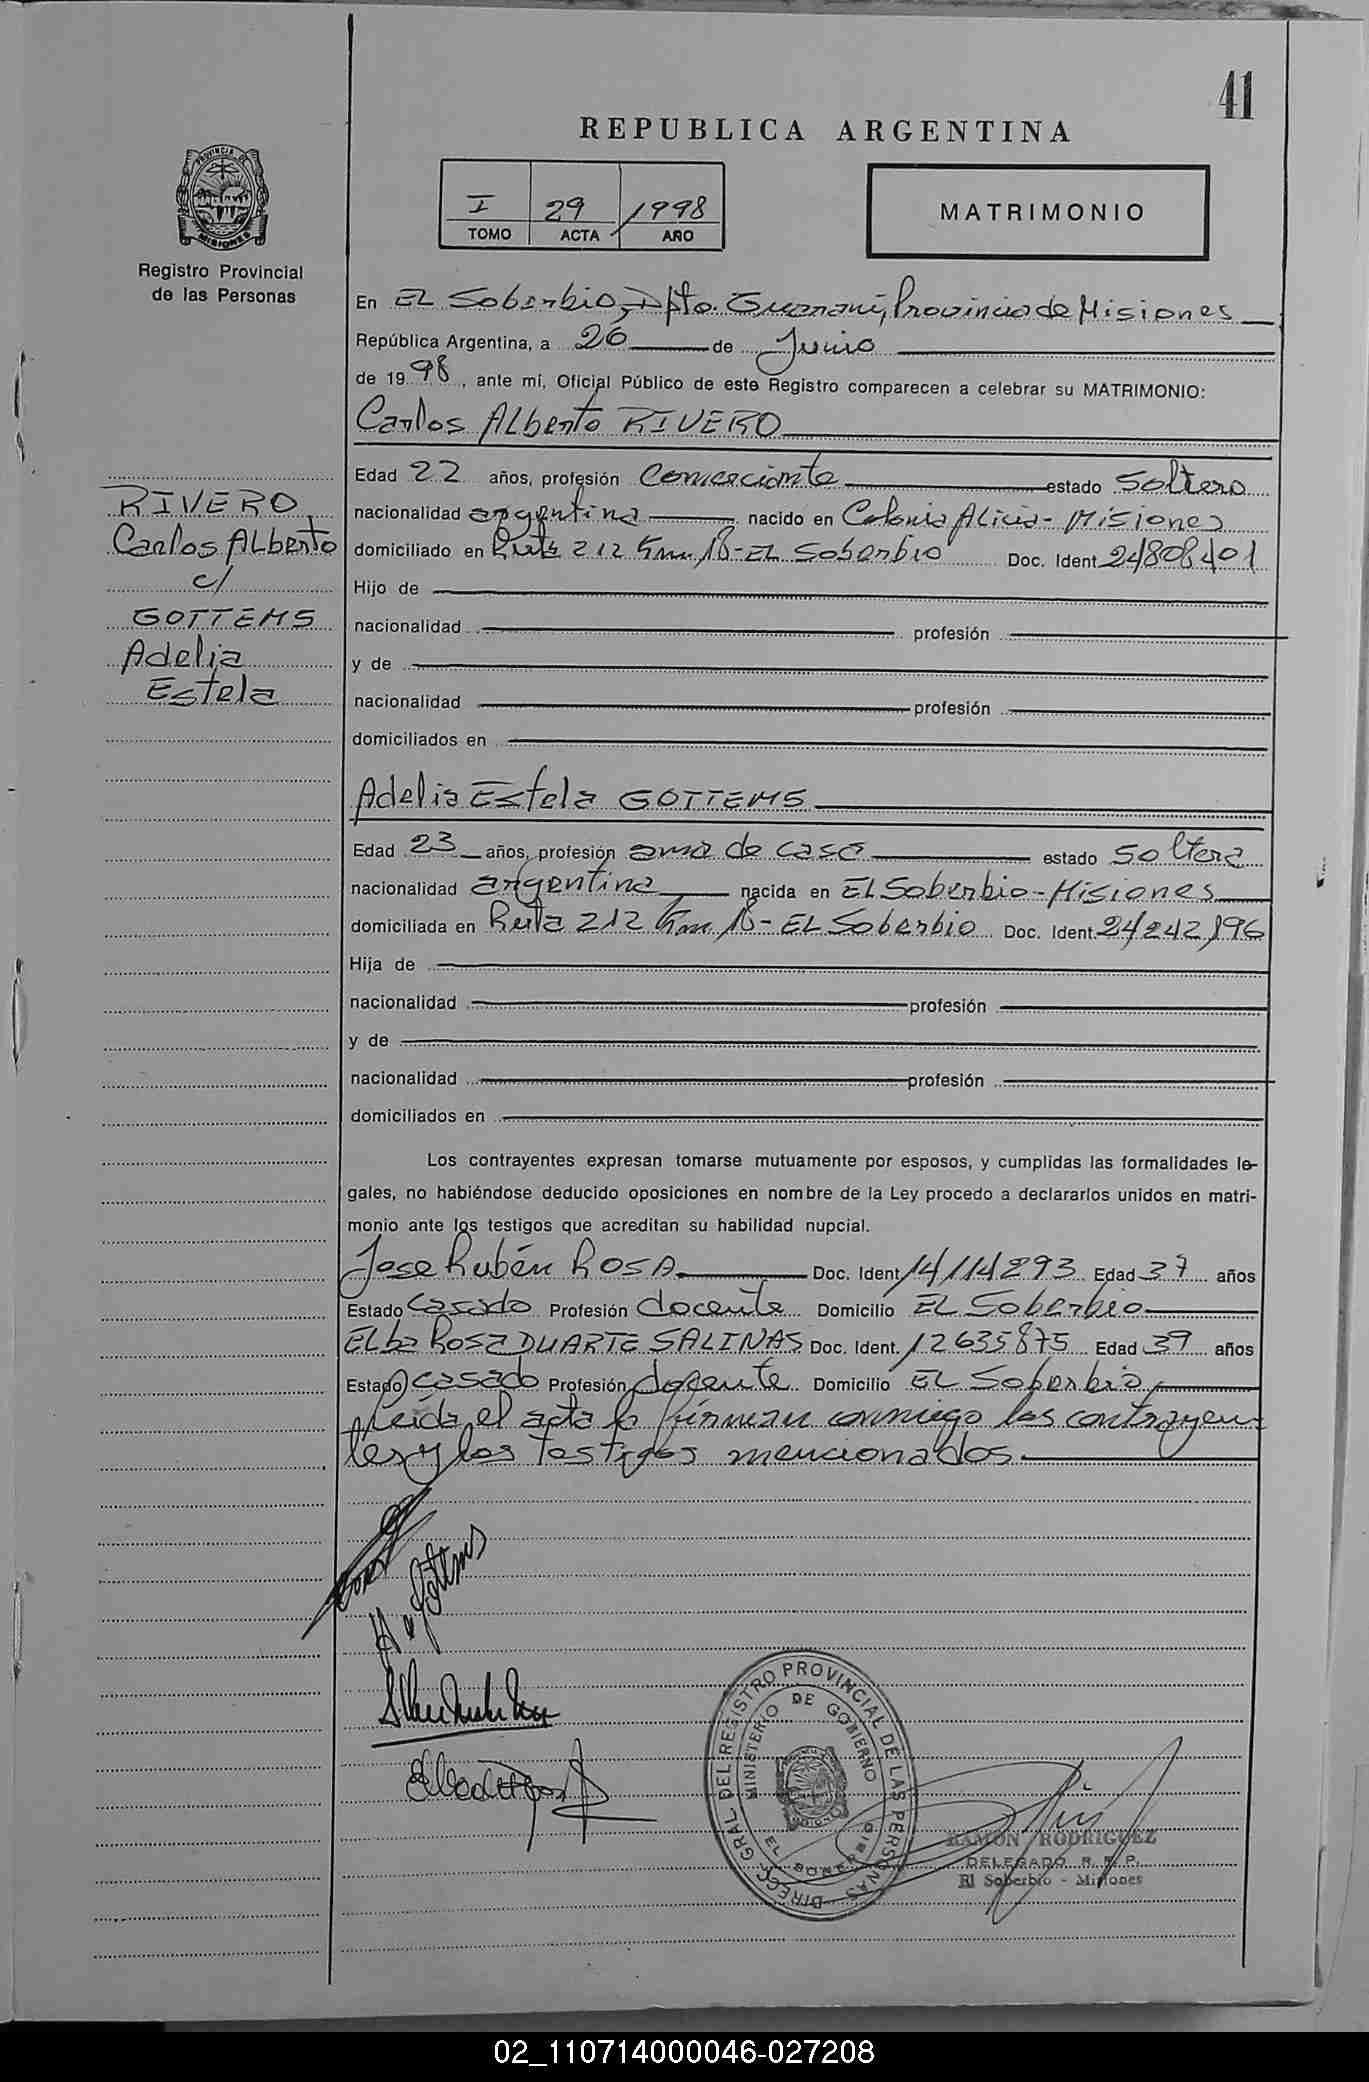 41
REPUBLICA ARGENTINA
PROVINCIA DE
MISIONES
Registro Provincial
de las Personas
I 29 1998
TOMO ACTA AÑO
MATRIMONIO
En EL Soberbio, Dpto. Guaraní, Provincia de Misiones
República Argentina, a 26 de Junio
de 19 98, ante mí, Oficial Público de este Registro comparecen a celebrar su MATRIMONIO:
Carlos Alberto RIVERO
RIVERO
Carlos Alberto
c/
GOTTEMS
Adelia
Estela
Edad 22 años, profesión Comerciante estado soltero
nacionalidad argentina nacido en Colonia Alicia - Misiones
domiciliado en Ruta 212 Km. 18 - EL Soberbio Doc. Ident. 24808401
Hijo de
nacionalidad profesión
y de
nacionalidad profesión
domiciliados en
Adelia Estela GOTTEMS
Edad 23 años, profesión ama de casa estado soltera
nacionalidad argentina nacida en EL Soberbio - Misiones
domiciliada en Ruta 212 Km. 18 - EL Soberbio Doc. Ident. 24242196
Hija de
nacionalidad profesión
y de
nacionalidad profesión
domiciliados en
Los contrayentes expresan tomarse mutuamente por esposos, y cumplidas las formalidades le-
gales, no habiéndose deducido oposiciones en nombre de la Ley procedo a declararlos unidos en matri-
monio ante los testigos que acreditan su habilidad nupcial.
Jose Rubén ROSA Doc. Ident 14114293 Edad 37 años
Estado casado Profesión docente Domicilio EL Soberbio
Elba Rosa DUARTE SALINAS Doc. Ident. 12635875 Edad 39 años
Estado casado Profesión docente Domicilio EL Soberbio,
Leida el acta la firman conmigo los contrayen-
tes y los testigos mencionados.
DIRECC. GRAL. DEL REGISTRO PROVINCIAL DE LAS PERSONAS
MINISTERIO DE GOBIERNO
EL SOBERBIO
RAMON RODRIGUEZ
DELEGADO R. P. P.
El Soberbio - Misiones
02_110714000046-027208